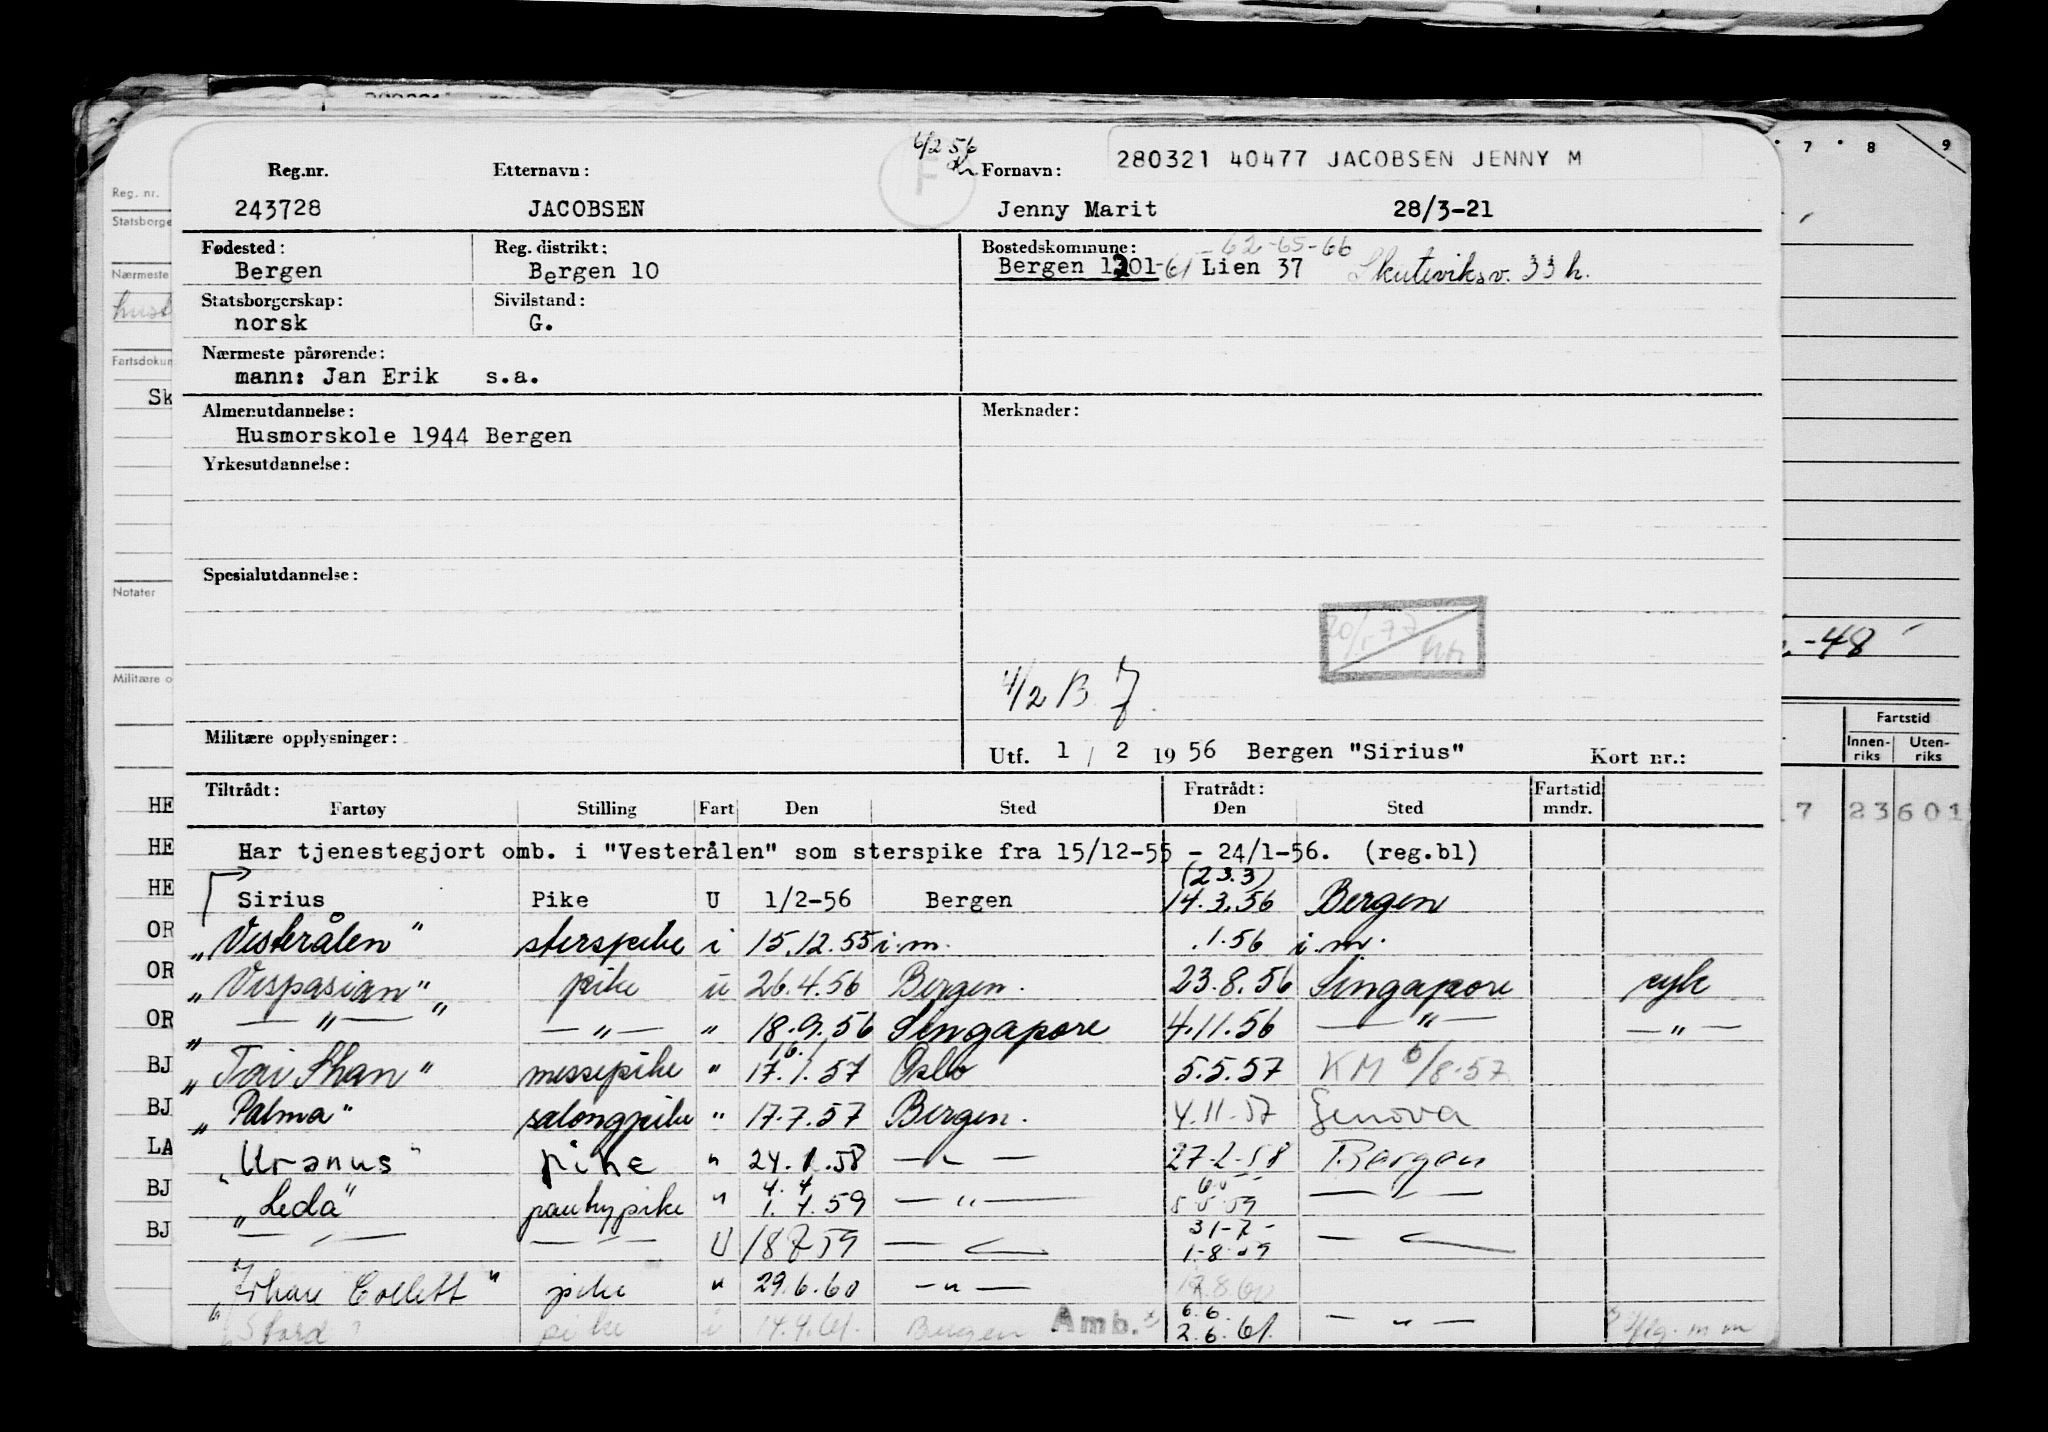 6/2 56
280321 40477 JACOBSEN JENNY M
Reg.nr. Etternavn: F Fornavn:
243728 JACOBSEN Jenny Marit 28/3-21
Fødested: Reg. distrikt: Bostedskommune: -62-65-66
Bergen Bergen 10 Bergen 1301-61 Lien 37 Skuteviksv. 33 h.
Statsborgerskap: Sivilstand:
norsk G.
Nærmeste pårørende:
mann: Jan Erik s.a.
Almenutdannelse: Merknader:
Husmorskole 1944 Bergen
Yrkesutdannelse:
Spesialutdannelse:
4/2 B.
Militære opplysninger:
Utf. 1 / 2 19 56 Bergen "Sirius" Kort nr.:
Tiltrådt: Fratrådt: Fartstid
Fartøy Stilling Fart Den Sted Den Sted mndr.
Har tjenestegjort omb. i "Vesterålen" som sterspike fra 15/12-55 - 24/1-56. (reg.bl)
(23.3)
Sirius Pike U 1/2-56 Bergen 14.3.56 Bergen
„Vesterålen" sterspike i 15.12.55 i.m. .1.56 i.m.
„Vespasian" pike u 26.4.56 Bergen. 23.8.56 Singapore syk
„ — " — " — " — " 18.9.56 Singapore 4.11.56 — " — — " —
16.1
„Tai Shan" messepike " 17.1.57 Oslo 5.5.57 KM 6/8.57
„Palma" salongpike " 17.7.57 Bergen. 4.11.57 Genova
„Uranus" pike " 24.1.58 — " — 27-2-58 Bergen
4.4
„Leda" pantrypike " 1.4.59 — " — 5 5 59 — " —
31-7-
— " — — " — U 18 7 59 — " — 1-8-59 — " —
„Johan Collett" pike " 29.6.60 — " — 8.60
6.6
„Stord" pike i 14.4.61. Bergen Amb. 2.6.61. — " —
Reg. nr.
Statsborge
Nærmeste
Fartsdokum
Sk
Notater
Militære o
HE
HE
HE
OR
OR
OR
BJ
BJ
LA
BJ
BJ
7 8 9
-48
Fartstid
Innen-riks Uten-riks
7 23 601